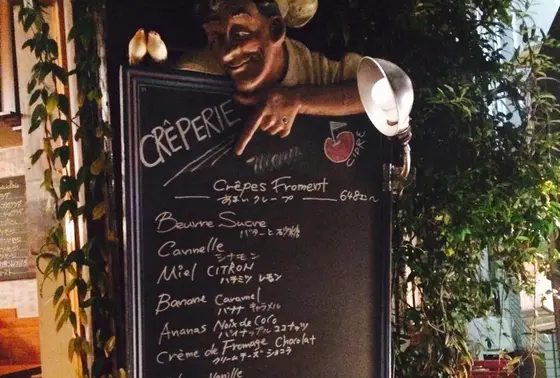 CRÊPERIE
CIDRE
Crêpes Froment
あまいクレープ 648エン〜
Beurre Sucre
バターと砂糖
Cannelle
シナモン
Miel CITRON
ハチミツ レモン
Banane Caramel
バナナ キャラメル
Ananas Noix de Coco
パイナップル ココナッツ
Crème de Fromage Chocolat
クリームチーズ ショコラ
Vanille